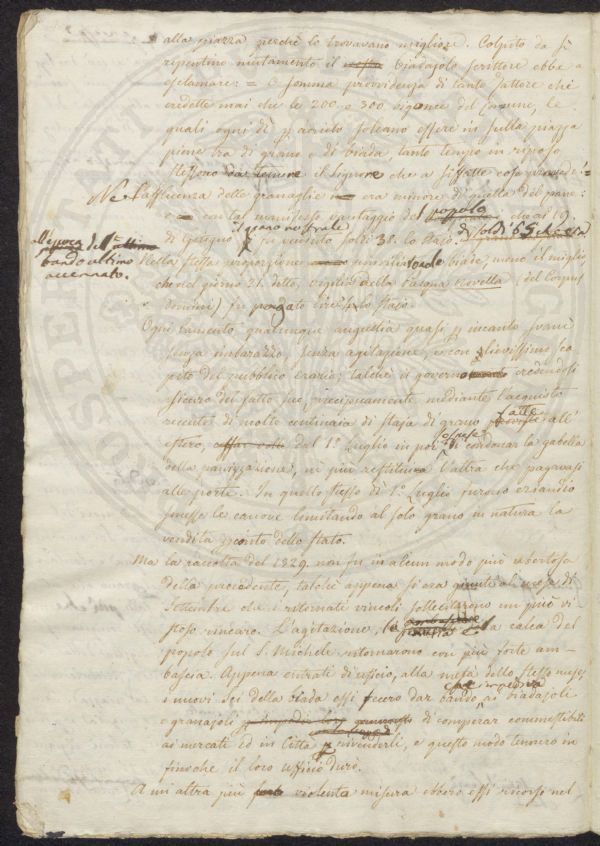 alla piazza perchè lo trovavano migliore. Colpito da sì
repentino mutamento il biadajolo scrittore ebbe a
esclamare: = O somma provvidenza di tanto fattore chi
credette mai che le 200 o 300 bigonce del Comune, le
quali ogni dì p. adrieto soleano essere in sulla piazza
piene tra di grano e di biada, tanto tempo in riposo
stessono
Nè l'affluenza delle granaglie era minore di quella del pane:
con tal manifesto vantaggio del popolo che ai 19.
il grano nostrale di soldi 65 ch'era
di Giugno si vendeva soldi 38. lo stajo.
all'epoca dell'ultimo
bando ultimo
accennato.
Nella stessa proporzione biade, meno il miglio
che nel giorno 21. detto, vigilia della Pasqua Novella (del Corpus
Domini) fu pagato lo stajo.
Ogni lamento, qualunque angustia quasi p. incanto svanì
senza imbarazzo, senza agitazione, e con lievissimo sca-
pito del pubblico erario; talchè il governo credendosi
sicuro del fatto suo, precipuamente mediante l'acquisto
recente di molte centinaja di staja di grano fatte all'
estero, dal 1.º Luglio in poi di condonar la gabella
della panizzazione, in più restituì l'altra che pagavasi
alle porte. In quello stesso dì 1.º Luglio furono eziandio
smesse le canove limitando al solo grano in natura la
vendita p. conto dello stato.
Ma la raccolta del 1329. non fu in alcun modo più ubertosa
della precedente, talchè appena si era giunti al mese di
Settembre che i ritornati vincoli sollecitarono un più vi-
stoso rincaro. L'agitazione, la calca del
popolo sul S. Michele ritornarono con più forte am-
bascia. Appena entrati di ufficio, alla metà dello stesso mese,
i nuovi sei della biada essi fecero dar bando ai biadajoli
e granajoli di comperar commestibili
ai mercati ed in Città p. rivenderli, e questo modo tennero in
finochè il loro ufficio durò.
A un'altra più violenta misura ebbero essi ricorso nel